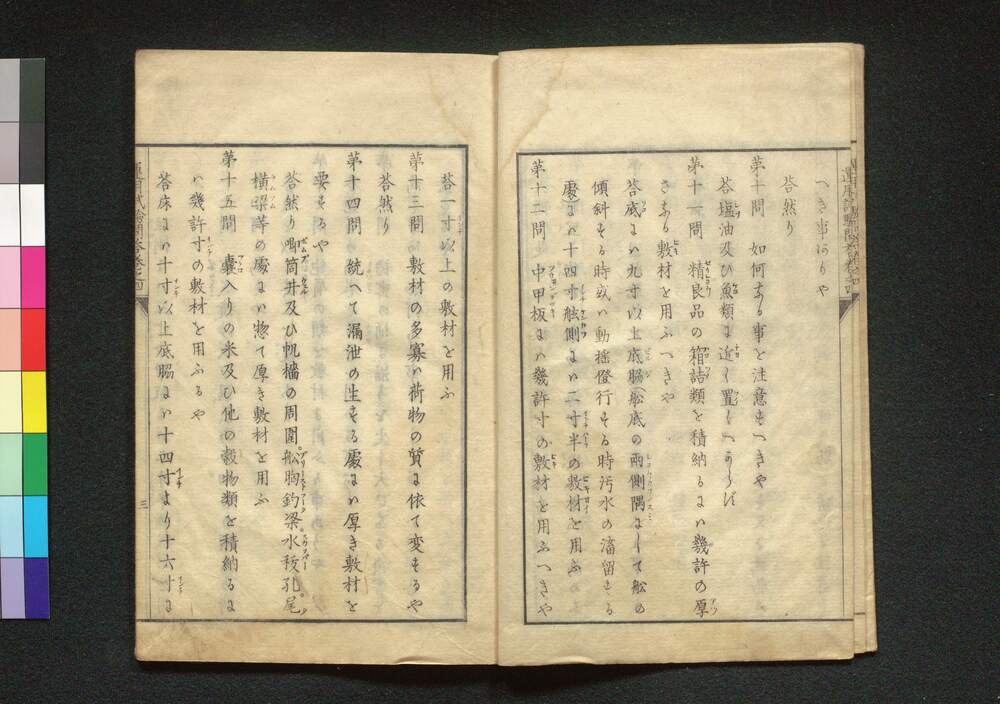 へき事ありや
答然り
第十問　如何なる事を注意すへきや
答塩油及ひ魚類に近く置くへからす
第十一問　精良品の箱詰類を積納るには幾許の厚
さなる敷材を用ふへきや
答底には九寸以上底脇舩底の両側隅にして舩の
傾斜する時或は動揺僜行する時汚水の瀦留する
處には十四寸舷側には二寸半の敷材を用ふ
第十二問　中甲板には幾許寸の敷材を用ふへきや
答一寸以上の敷材を用ふ
第十三問　敷材の多寡は荷物の質に依て変するや
答然り
第十四問　統へて漏泄の生する處には厚き敷材を
要するや
答然り喞筒井及ひ帆檣の周圍船胸釣梁水稜孔尾
横梁等の處には惣て厚き敷材を用ふ
第十五問　嚢入りの米及ひ他の穀物類を積納るに
は幾許寸の敷材を用ふるや
答床には十寸以上底脇には十四寸より十六寸に
三